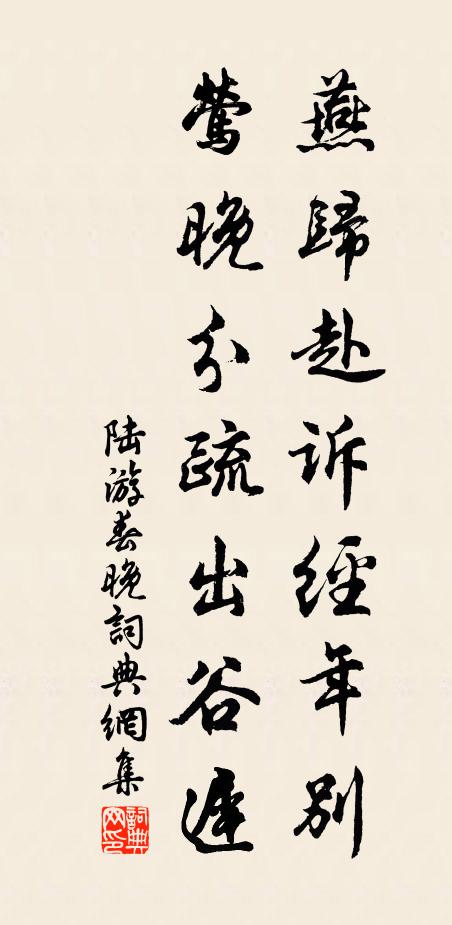 燕歸赴訴經年別
鶯晚分疏出谷遲
陸游春晚詞典網集
詞典網印